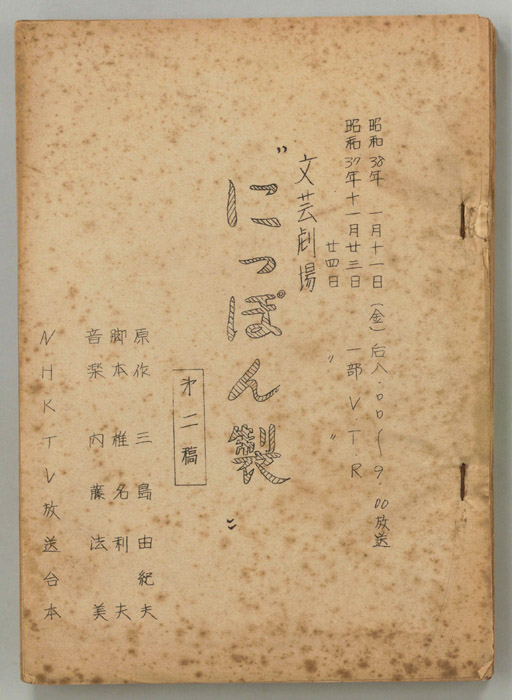 昭和38年 一月十一日（金）后八.00〜9.00放送
昭和37年十一月廿三日 一部VTR
廿四日 〃 〃
文芸劇場
〝にっぽん製〟
第二稿
原作 三島由紀夫
脚本 椎名利夫
音楽 内藤法美
NHKTV放送台本